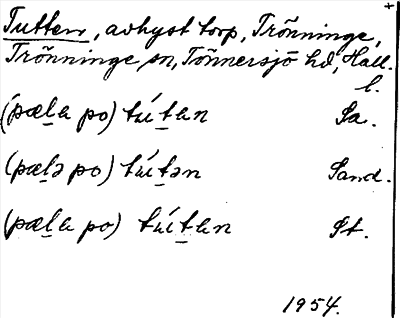 Tutten, avhyst torp, Trönninge,
Trönninge sn, Tönnersjö hd, Hall.
l.
(pæla po) tútan Sa.
(pælə po) tútən Sand.
(pæla po) tútan St.
1954.